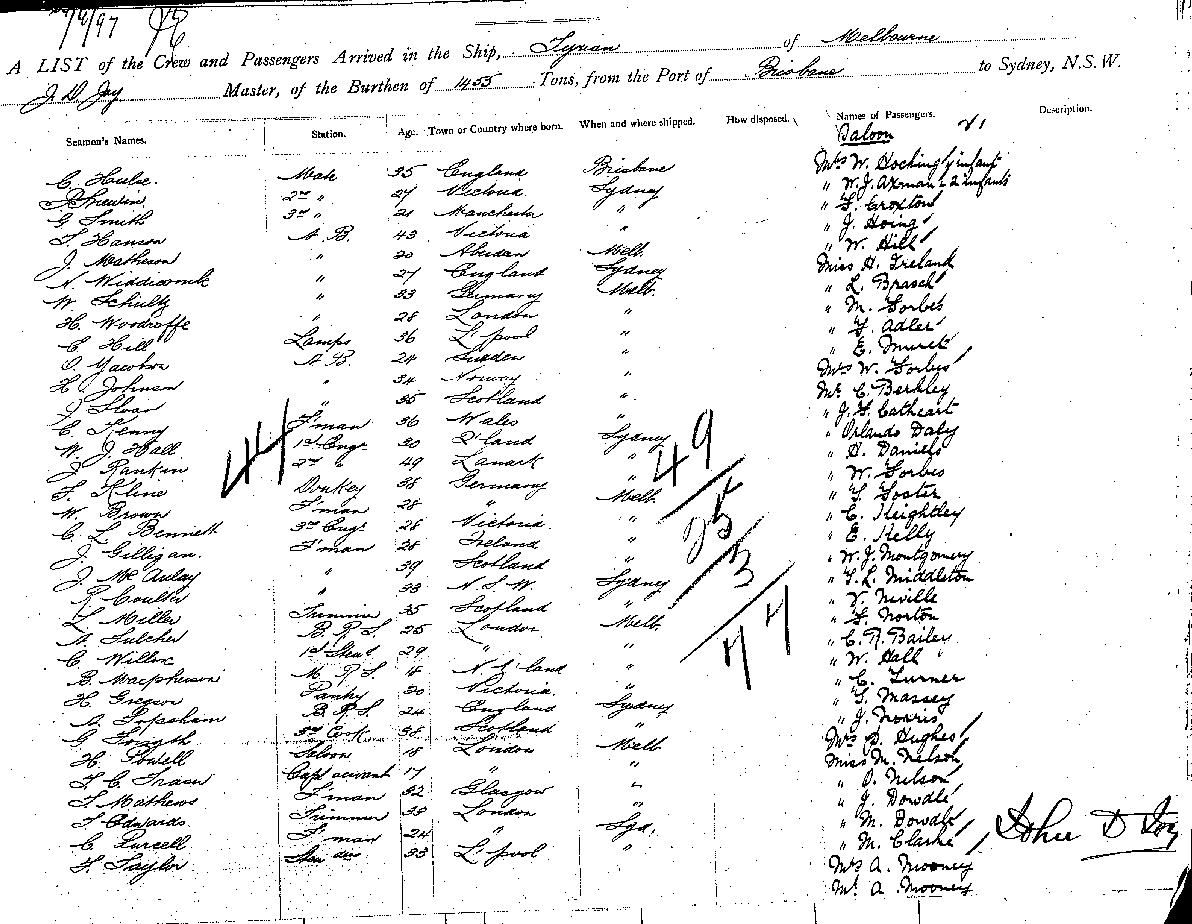 7/6/97
A LIST of the Crew and Passengers Arrived in the Ship, Tyrian of Melbourne
J. D. Joy Master, of the Burthen of 1455 Tons, from the Port of Brisbane to Sydney, N.S.W.
Seamen's Names. Station. Age. Town or Country where born. When and where shipped. How disposed. Names of Passengers. Description.
Saloon
C. Hulse Mate 35 England Brisbane Mrs W. Hocking & infant
2nd " 27 Victoria Sydney " W. J. Axman & 2 infants
G. Smith 3rd " 21 Manchester " " F. Croxton
T. Hanson A. B. 43 Victoria " " J. Hoing
J. Matheson " 20 Aberdeen Melb. " W. Hill
N. Widdicomb " 27 England Sydney Miss H. Ireland
W. Schultz " 33 Germany Melb. " L. Brasch
H. Woodroffe " 28 London " " M. Forbes
C. Hill Lamps 36 L'pool " " F. Adler
O. Jacobson A. B. 24 Sweden " " E. Muret
H. Johnson " 34 Norway " Mrs W. Forbes
J. Sloan " 35 Scotland " Mr. C. Berkley
C. Kenny F'man 36 Wales " " J. F. Cathcart
W. J. Hall 1st Engr 30 Q'land Sydney " Orlando Daly
J. Rankin 2nd " 49 Lanark " " H. Daniels
F. Kline Donkey 38 Germany " " W. Forbes
W. Brown F'man 28 " Melb. " T. Foster
C. L. Bennett 3rd Engr 28 Victoria " " C. Keightley
J. Gilligan F'man 28 Ireland " " E. Kelly
J. McAulay " 39 Scotland " " W. J. Montgomery
R. Coulter " 33 N. S. W. Sydney " T. L. Middleton
L. Miller Trimmer 35 Scotland " " V. Neville
A. Fulcher B. R. S. 25 London Melb. " F. Norton
C. Willox 1st Stewd 29 " " " C. R. Bailey
B. Macpherson M. R. S. N. Z. land " " W. Hall
H. Gregor Pantry 20 Victoria " " C. Turner
A. Topsham B. R. S. 24 England Sydney " T. Massey
G. Forsyth 3rd Cook 38 Scotland " " J. Norris
H. Powell Saloon 18 London Melb. Mrs D. Hughes
T. C. Fraser Capt servant 17 " " Miss M. Nelson
T. Mathews F'man 32 Glasgow " " O. Nelson
T. Edwards Trimmer 30 London " " J. Dowdle
C. Purcell F'man 24 " Syd. " M. Dowdle
F. Taylor 33 L'pool " " M. Clarke
Mrs A. Mooney
Mr. A. Mooney
41
49
25
3
77
John D Joy